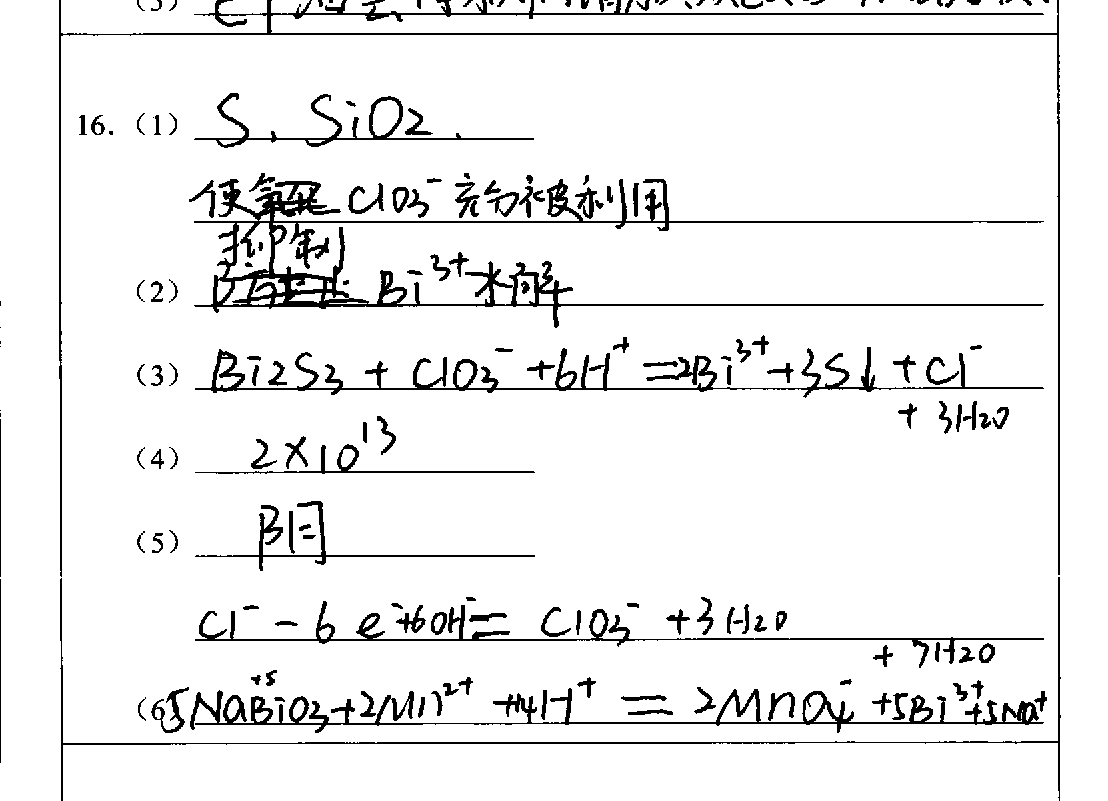 (3)
16.(1) S、SiO2.
使 ClO3⁻ 充分被利用
抑制
(2) Bi³⁺水解
(3) Bi2S3 + ClO3⁻ +6H⁺ =2Bi³⁺+3S↓ + Cl⁻
+ 3H2O
(4) 2×10¹³
(5) 阳
Cl⁻ - 6e⁻+6OH⁻= ClO3⁻ +3H2O
+ 7H2O
+5
(6) 5NaBiO3+2Mn²⁺ +14H⁺ = 2MnO4⁻ +5Bi³⁺+5Na⁺